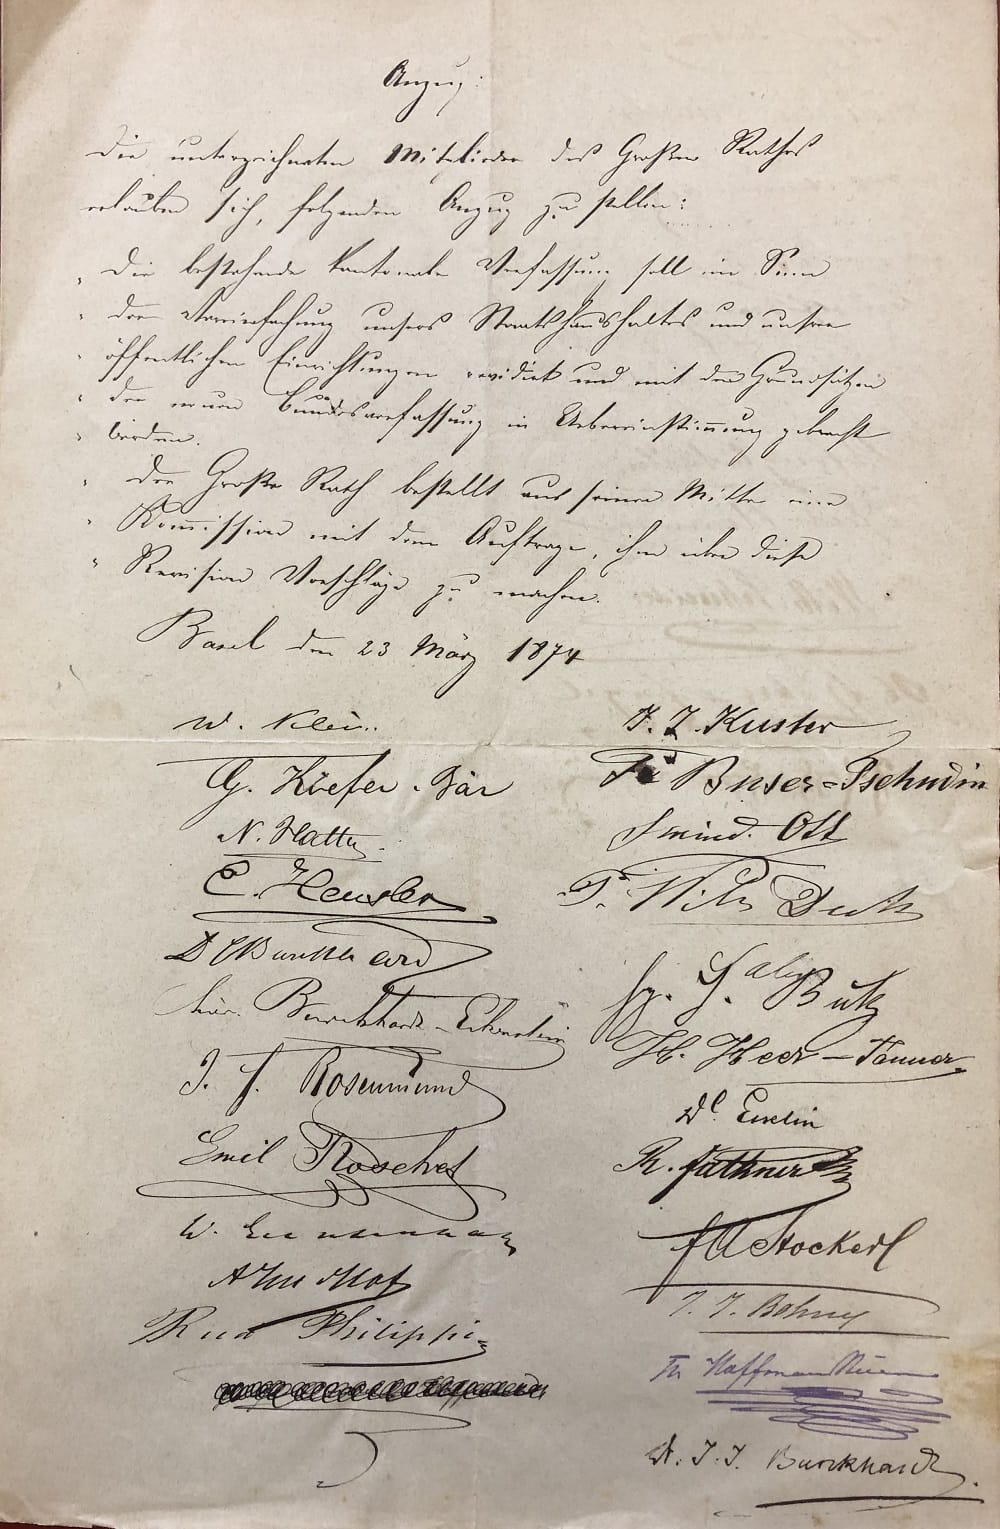 Anzug:
Die unterzeichneten Mitglieder des Großen Rathes
erlauben sich, folgenden Anzug zu stellen:
„ Die bestehende kantonale Verfassung soll im Sinne
„ der Vereinfachung unsers Staatshaushaltes und unsrer
„ öffentlichen Einrichtungen revidirt und mit den Grundsätzen
„ der neuen Bundesverfassung in Uebereinstimmung gebracht
„ werden.
„ Der Große Rath bestellt aus seiner Mitte eine
„ Kommission mit dem Auftrage, ihm über diese
„ Revision Vorschläge zu machen.
Basel den 23 März 1874
W. Klein.
G. Kiefer-Bär
N. Halter
C. Heusler
Burckhardt-
J. J. Rosenmund
Emil Roschet
W.
A Imhof
Rud Philippi
J. J. Kuster
Buser-Tschudin
Ott
F.
Butz
H. Heer-Tanner
R. Falkner
Stockerl
J. J. Bohny
Hoffmann
Dr. J. J. Burckhardt.